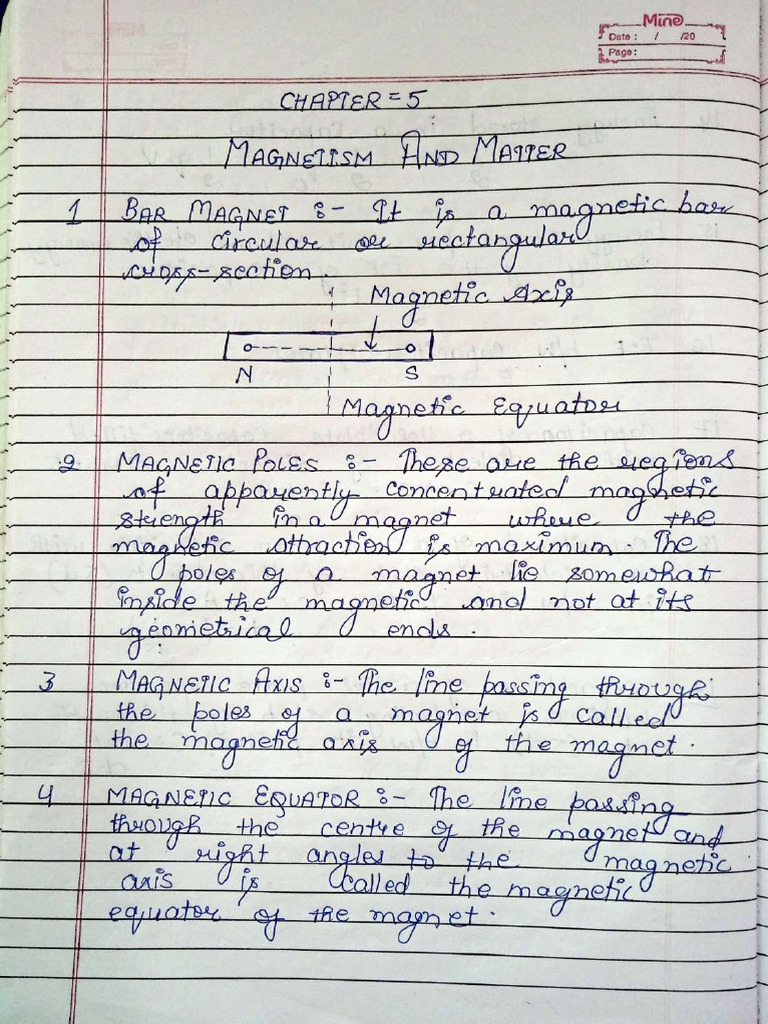 Mine
Date : / /20
Page:
CHAPTER = 5
MAGNETISM AND MATTER
1 BAR MAGNET :- It is a magnetic bar
of circular or rectangular
cross-section.
Magnetic Axis
N S
Magnetic Equator
2 MAGNETIC POLES :- These are the regions
of apparently concentrated magnetic
strength in a magnet where the
magnetic attraction is maximum. The
poles of a magnet lie somewhat
inside the magnetic and not at its
geometrical ends.
3 MAGNETIC AXIS :- The line passing through
the poles of a magnet is called
the magnetic axis of the magnet.
4 MAGNETIC EQUATOR :- The line passing
through the centre of the magnet and
at right angles to the magnetic
axis is called the magnetic
equator of the magnet.